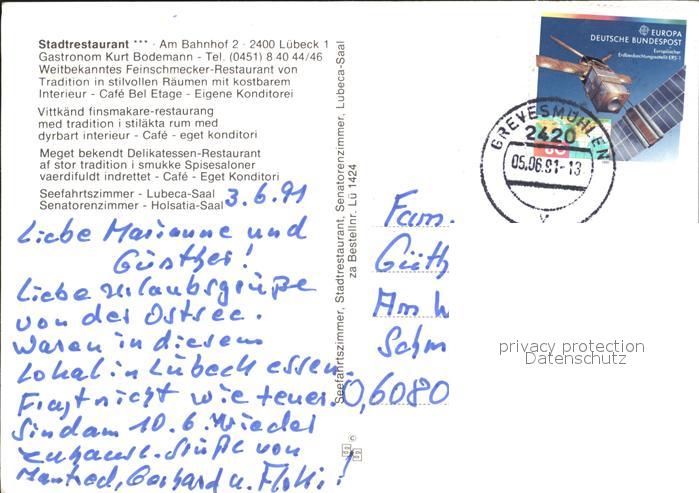 Stadtrestaurant *** · Am Bahnhof 2 · 2400 Lübeck 1
Gastronom Kurt Bodemann - Tel. (0451) 8 40 44/46
Weitbekanntes Feinschmecker-Restaurant von
Tradition in stilvollen Räumen mit kostbarem
Interieur - Café Bel Etage - Eigene Konditorei
Vittkänd finsmakare-restaurang
med tradition i stiläkta rum med
dyrbart interieur - Café - eget konditori
Meget bekendt Delikatessen-Restaurant
af stor tradition i smukke Spisesaloner
vaerdifuldt indrettet - Café - Eget Konditori
Seefahrtszimmer - Lubeca-Saal
Senatorenzimmer - Holsatia-Saal
3.6.91
Liebe Marianne und
Günther!
Liebe Urlaubsgrüße
von der Ostsee.
Waren in diesem
Lokal in Lübeck essen.
Fragt nicht wie teuer.
Sind am 10.6. wieder
zuhause. Grüße von
Manfred, Gerhard u. Flocki!
Seefahrtszimmer, Stadtrestaurant, Senatorenzimmer, Lubeca-Saal
za Bestellnr. Lü 1424
©
EUROPA
DEUTSCHE BUNDESPOST
Europäischer
Erdbeobachtungssatellit ERS-1
GREVESMÜHLEN
2420
05.06.91-13
Fam.
Güth
Am W
Schm
0,6080
privacy protection
Datenschutz